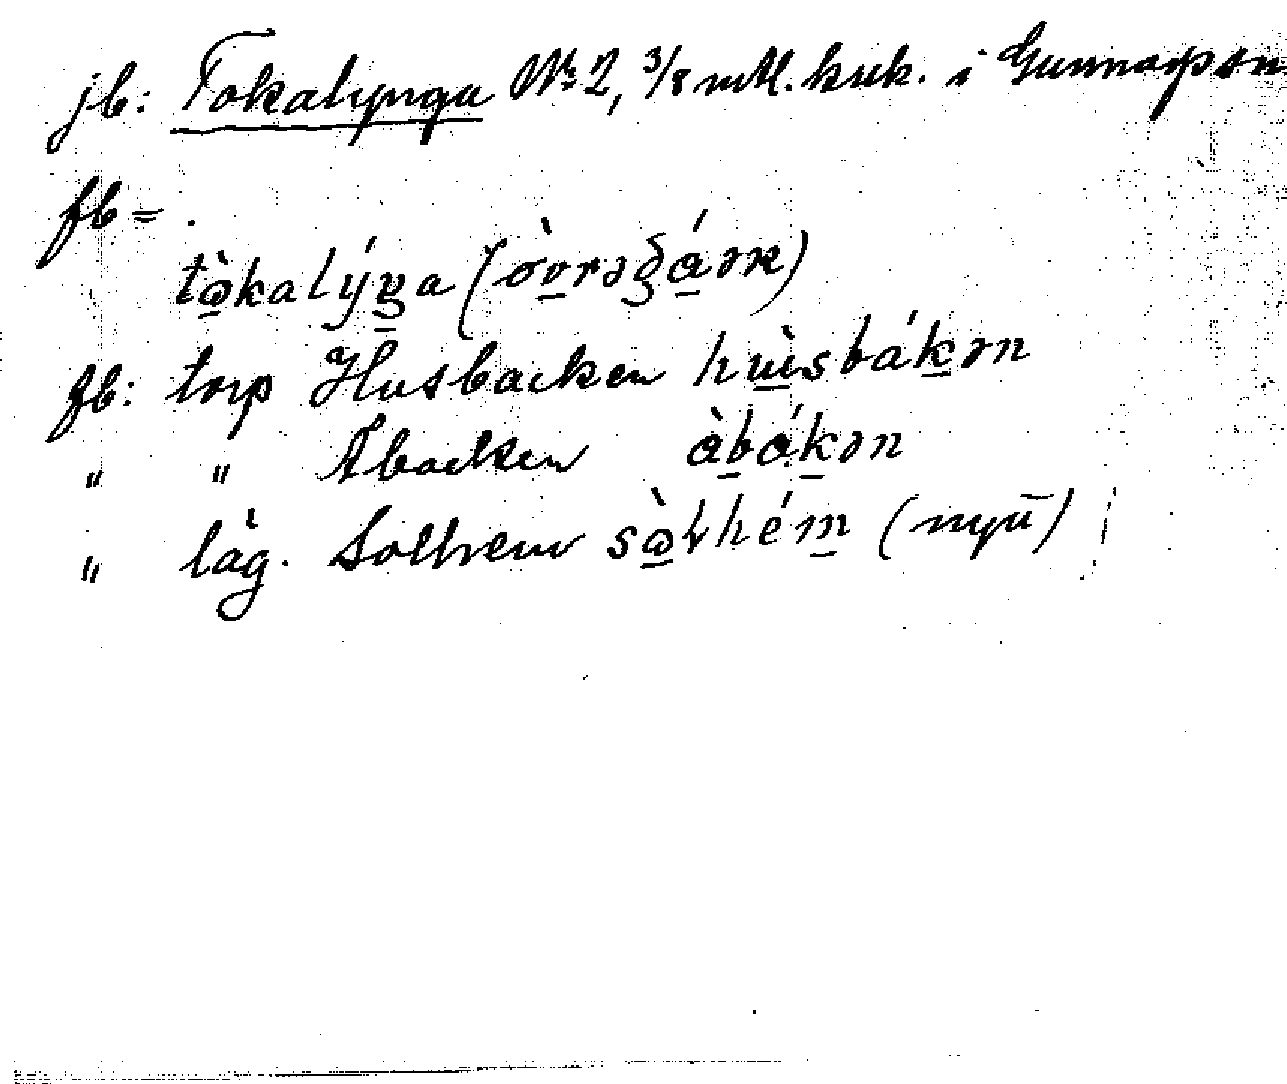 jb: Tokalynga № 2, 3/8 mtl. krk. i Gunnarps sn
fb = .
tò̱kalýŋa (òv̱rəgá̱ən)
fb: torp Husbacken hùsbáḵən
" " Åbacken àḇáḵən
" läg. Solhem sò̱lhém̱ (nyū)